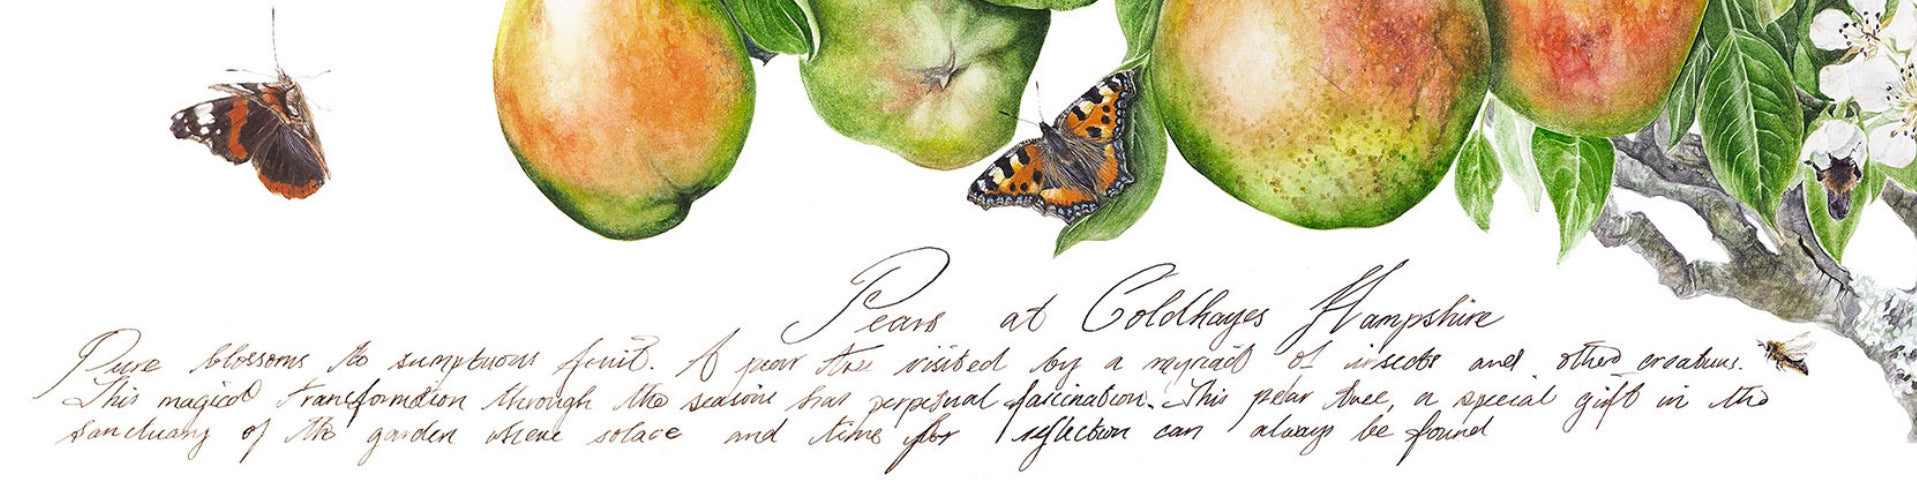 Pears at Coldhayes Hampshire
Pure blossoms to sumptuous fruit. A pear tree visited by a myriad of insects and other creatures.
This magical transformation through the seasons has perpetual fascination. This pear tree, a special gift in the
sanctuary of the garden where solace and time for reflection can always be found